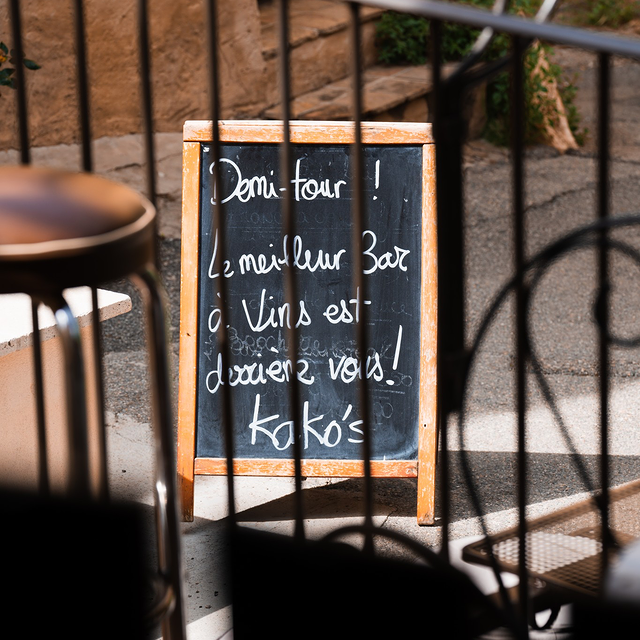 Demi-tour !
Le meilleur Bar
à Vins est
derrière vous!
Kako's